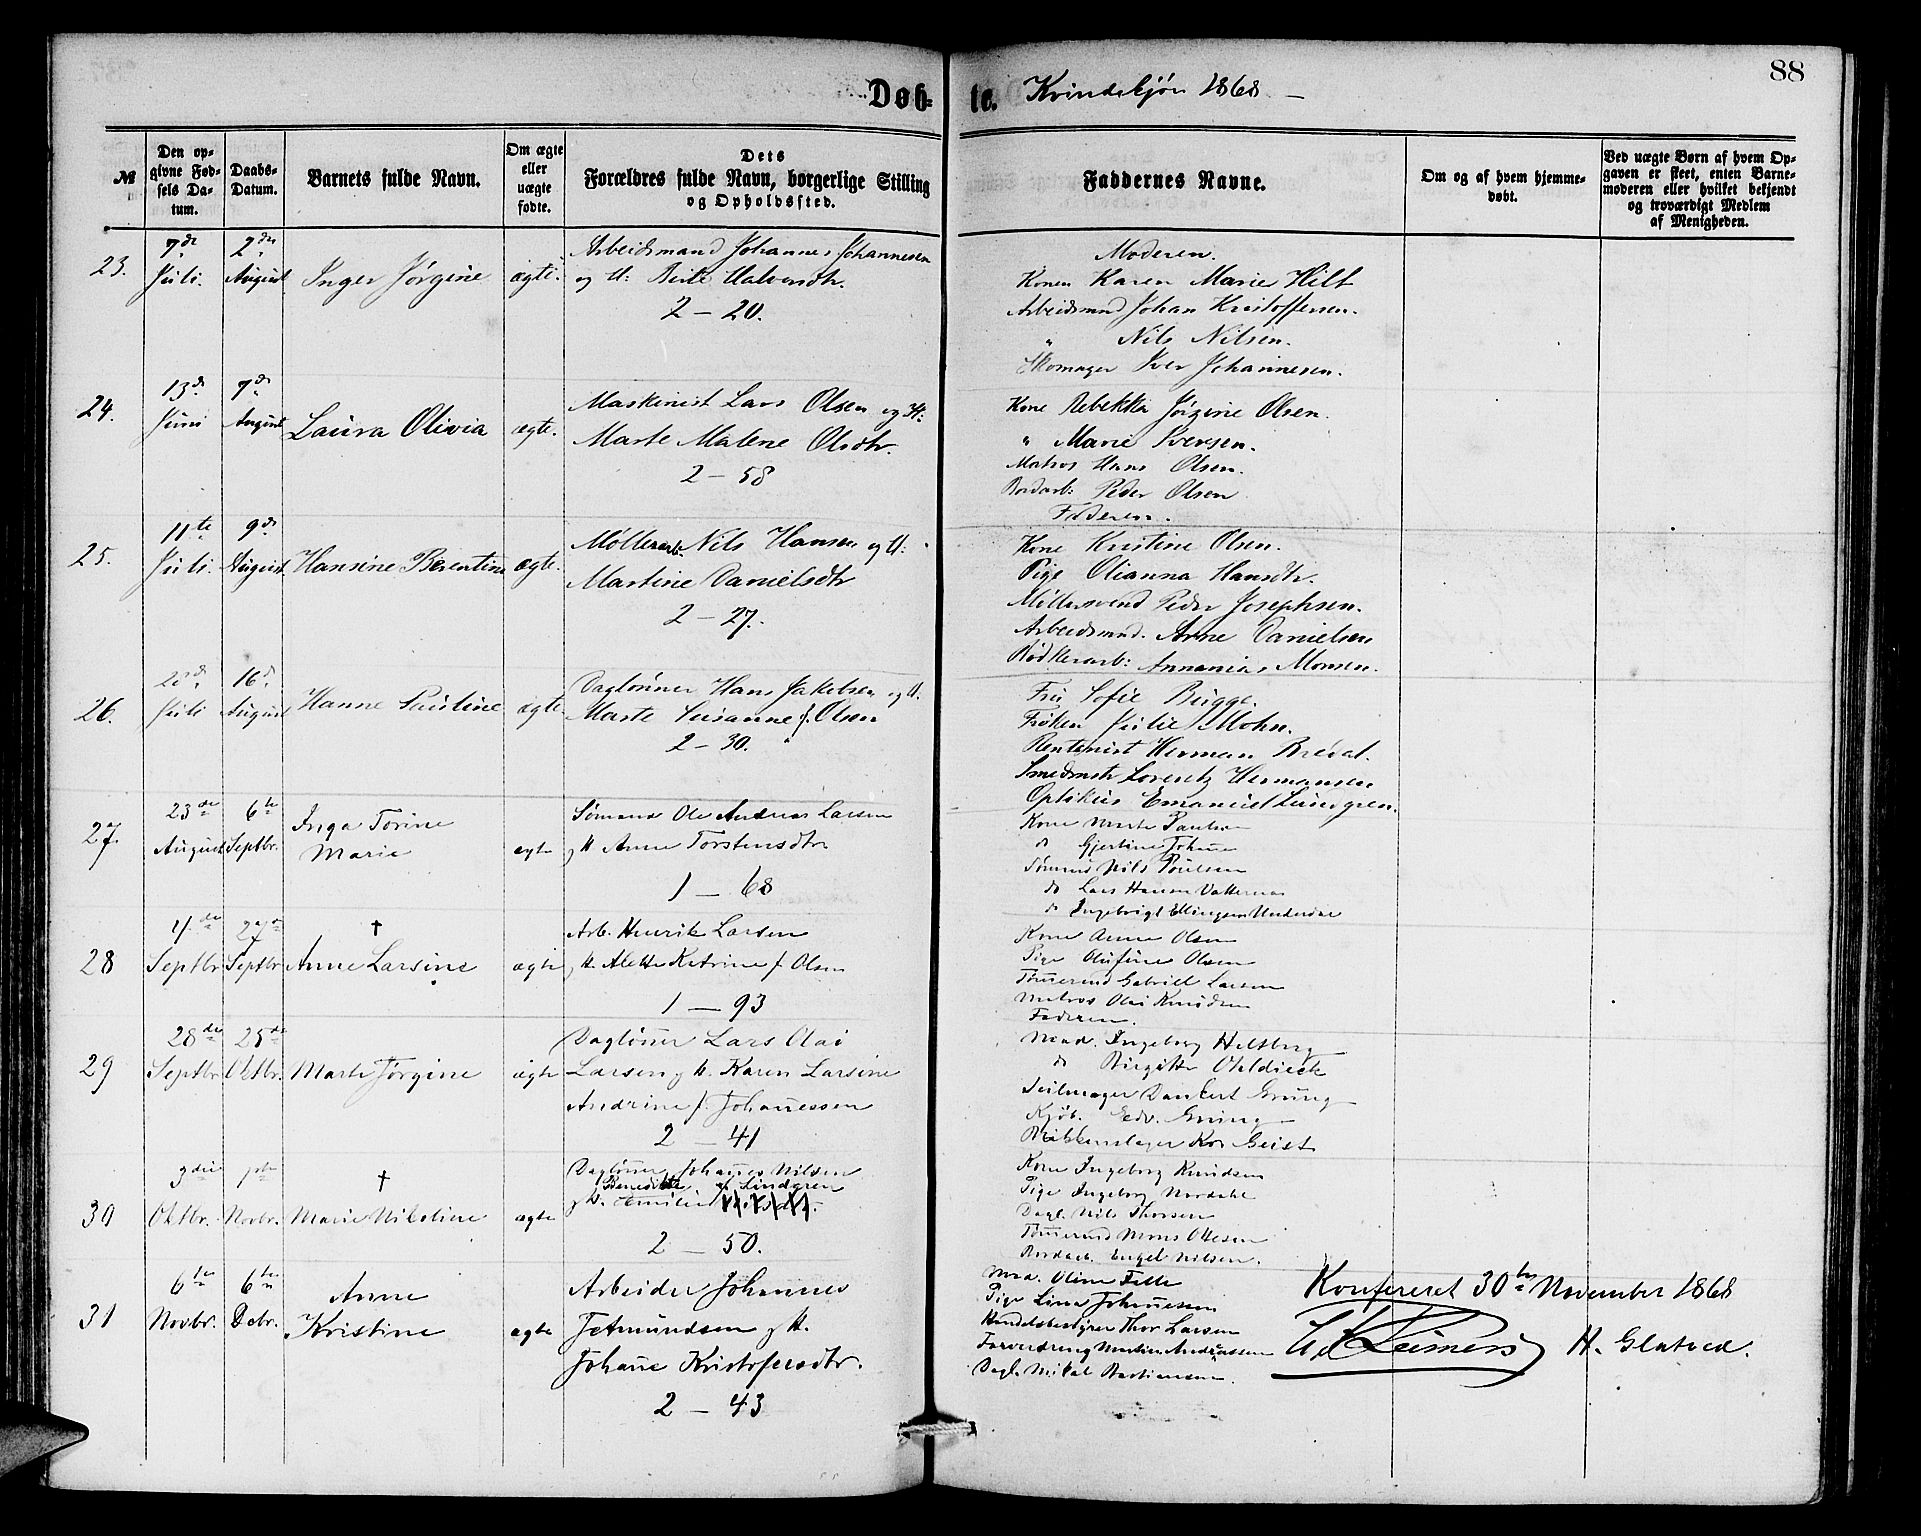 88
Døb-
te. Kvindekjön 1868. —
№
Den op-
givne Fød-
sels Da-
tum.
Daabs-
Datum.
Barnets fulde Navn.
Om ægte
eller
uægte
fødte.
Dets
Forældres fulde Navn, borgerlige Stilling
og Opholdssted.
Faddernes Navne.
Om og af hvem hjemme-
døbt.
Ved uægte Børn af hvem Op-
gaven er skeet, enten Barne-
moderen eller hvilket bekjendt
og troværdigt Medlem
af Menigheden.
23.
7de
Juli.
2den
August
Inger Jörgine
ægte.
Arbeidsmand Johannes Johannesen
og H: Halvorsdtr.
2 – 20.
Moderen.
Konen Karen Marie Hilt
Arbeidsmnd Johan Kristoffersen.
" Nils Nilsen.
Skomager Iver Johannesen.
24.
13de
Juni
7de
August
Laura Olivia
ægte.
Maskinist Lars Olsen og H:
Marte Malene Olsdtr.
2 – 58
Kone Rebekka Jörgine Olsen.
" Marie Iversen.
Matros Hans Olsen.
Bordarb: Peder Olsen
Faderen.
25.
11te
Juli.
9de
August
Hansine Berentine
ægte.
Møllerarb. Nils Hansen og H:
Martine Danielsdtr
2 – 27.
Kone Kristine Olsen.
Pige Olianna Hansdtr.
Møllersvend Peder Josephsen.
Arbeidsmnd. Arne Danielsen
Bødkerarb: Annanias Monsen.
26.
Juli
16de
August
Hanne Pauline
ægte.
Daglönner Hans Jakobsen og H.
Marte Susanne f. Olsen
2 – 30.
Fru Sofie Brügge.
Frøken Julie Mohn.
Rentenist Herman
Smedmstr Lorentz Hermansen
Optikus Emanuel Lundgren.
27.
23de
August
6te
Septbr.
Inga Torine
Marie
ægte
Sømand Ole Andreas Larsen
og H Anne Torstensdtr
1 – 68
Kone Marte Paulsen
do Gjertine Johanne
Sømand Nils Poulsen
do Lars Hansen
do Ingebrigt Ellingsen
28
4de
Septbr
27de
Septbr
†
Anne Larsine
ægte
Arb. Henrik Larsen
og H. Alette Katrine f. Olsen
1 – 93
Kone Anne Olsen
Pige Olufine Olsen
Gabriel Larsen
Matros Olai Knudsen
Faderen.
29
28de
Septbr
25de
Oktbr.
Marte Jörgine
ægte
Daglönner Lars Olai
Larsen og H. Karen Larsine
Andrine f. Johannessen
2 – 41
Mad. Ingeborg Heltberg
do Birgitte Oheldieck
Seilmager Dankert Grung
Kjöb. Edv. Grung
Geist
30
3die
Oktbr.
1ste
Novbr.
†
Marie Nikoline
ægte
Daglönner Johannes Nilsen
Benedikte f. Lindgren
og H. Emilie
2 – 50.
Kone Ingeborg Knudsen
Pige Ingeborg Nordahl
Dagl. Nils Thorsen
Mons Ottesen
Bordarb. Engel Nilsen.
31
6te
Novbr.
6te
Debr.
Anne
Kristine
ægte
Arbeider Johannes
Jetmundsen og H.
Johanne Kristofersdtr.
2 – 43
Mad. Oline Felle
Pige Lina Johannesen
Handelsbestyrer Thor Larsen
Martin Andreassen
Dagl. Mikal Bastiansen.
Konfereret 30te November 1868
Reimers H. Glatved.